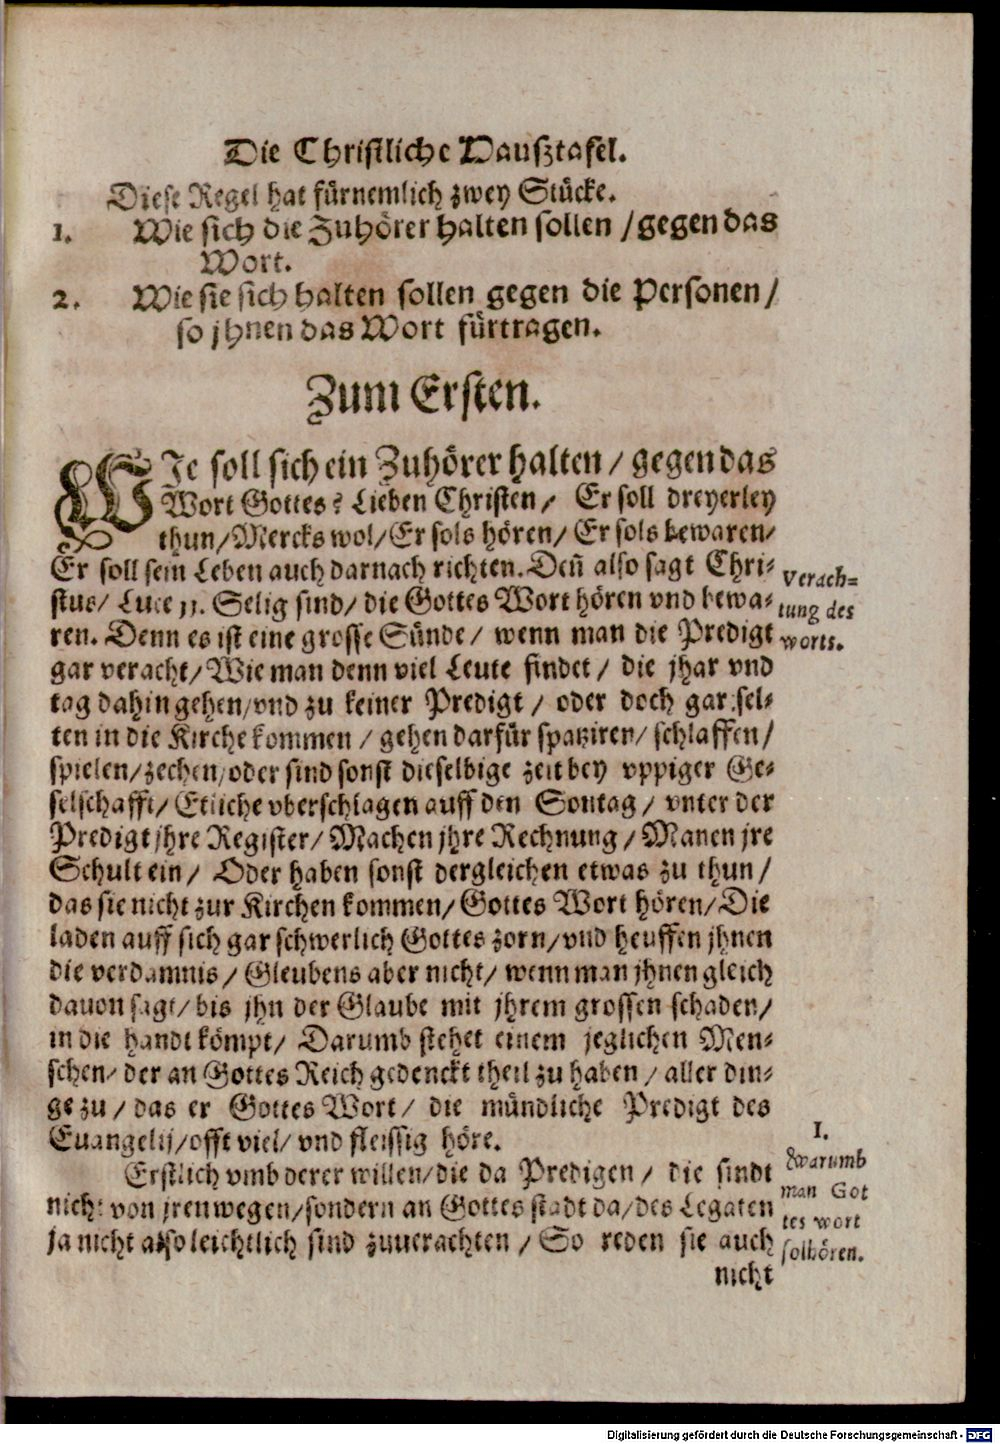 Die Christliche Hausztafel.
Diese Regel hat fürnemlich zwey Stücke.
1. Wie sich die Zuhörer halten sollen / gegen das
Wort.
2. Wie sie sich halten sollen gegen die Personen /
so jhnen das Wort fürtragen.
Zum Ersten.
WIe soll sich ein Zuhörer halten / gegen das
Wort Gottes? Lieben Christen / Er soll dreyerley
thun / Mercks wol / Er sols hören / Er sols bewaren /
Er soll sein Leben auch darnach richten. Deñ also sagt Chri-
stus / Luce 11. Selig sind / die Gottes Wort hören vnd bewa-
ren. Denn es ist eine grosse Sünde / wenn man die Predigt
gar veracht / Wie man denn viel Leute findet / die jhar vnd
tag dahin gehen / vnd zu keiner Predigt / oder doch gar sel-
ten in die Kirche kommen / gehen darfür spatziren / schlaffen /
spielen / zechen / oder sind sonst dieselbige zeit bey vppiger Ge-
selschafft / Etliche vberschlagen auff den Sontag / vnter der
Predigt jhre Register / Machen jhre Rechnung / Manen jre
Schult ein / Oder haben sonst dergleichen etwas zu thun /
das sie nicht zur Kirchen kommen / Gottes Wort hören / Die
laden auff sich gar schwerlich Gottes zorn / vnd heuffen jhnen
die verdamnis / Gleubens aber nicht / wenn man jhnen gleich
dauon sagt / bis jhn der Glaube mit jhrem grossen schaden /
in die handt kömpt / Darumb stehet einem jeglichen Men-
schen / der an Gottes Reich gedenckt theil zu haben / aller din-
ge zu / das er Gottes Wort / die mündliche Predigt des
Euangelij / offt viel / vnd fleissig höre.
Erstlich vmb derer willen / die da Predigen / die sindt
nicht von jren wegen / sondern an Gottes stadt da / des Legaten
ja nicht also leichtlich sind zuuerachten / So reden sie auch
nicht
Verach-
tung des
worts.
I.
Warumb
man Got
tes wort
sol hören.
Digitalisierung gefördert durch die Deutsche Forschungsgemeinschaft - DFG